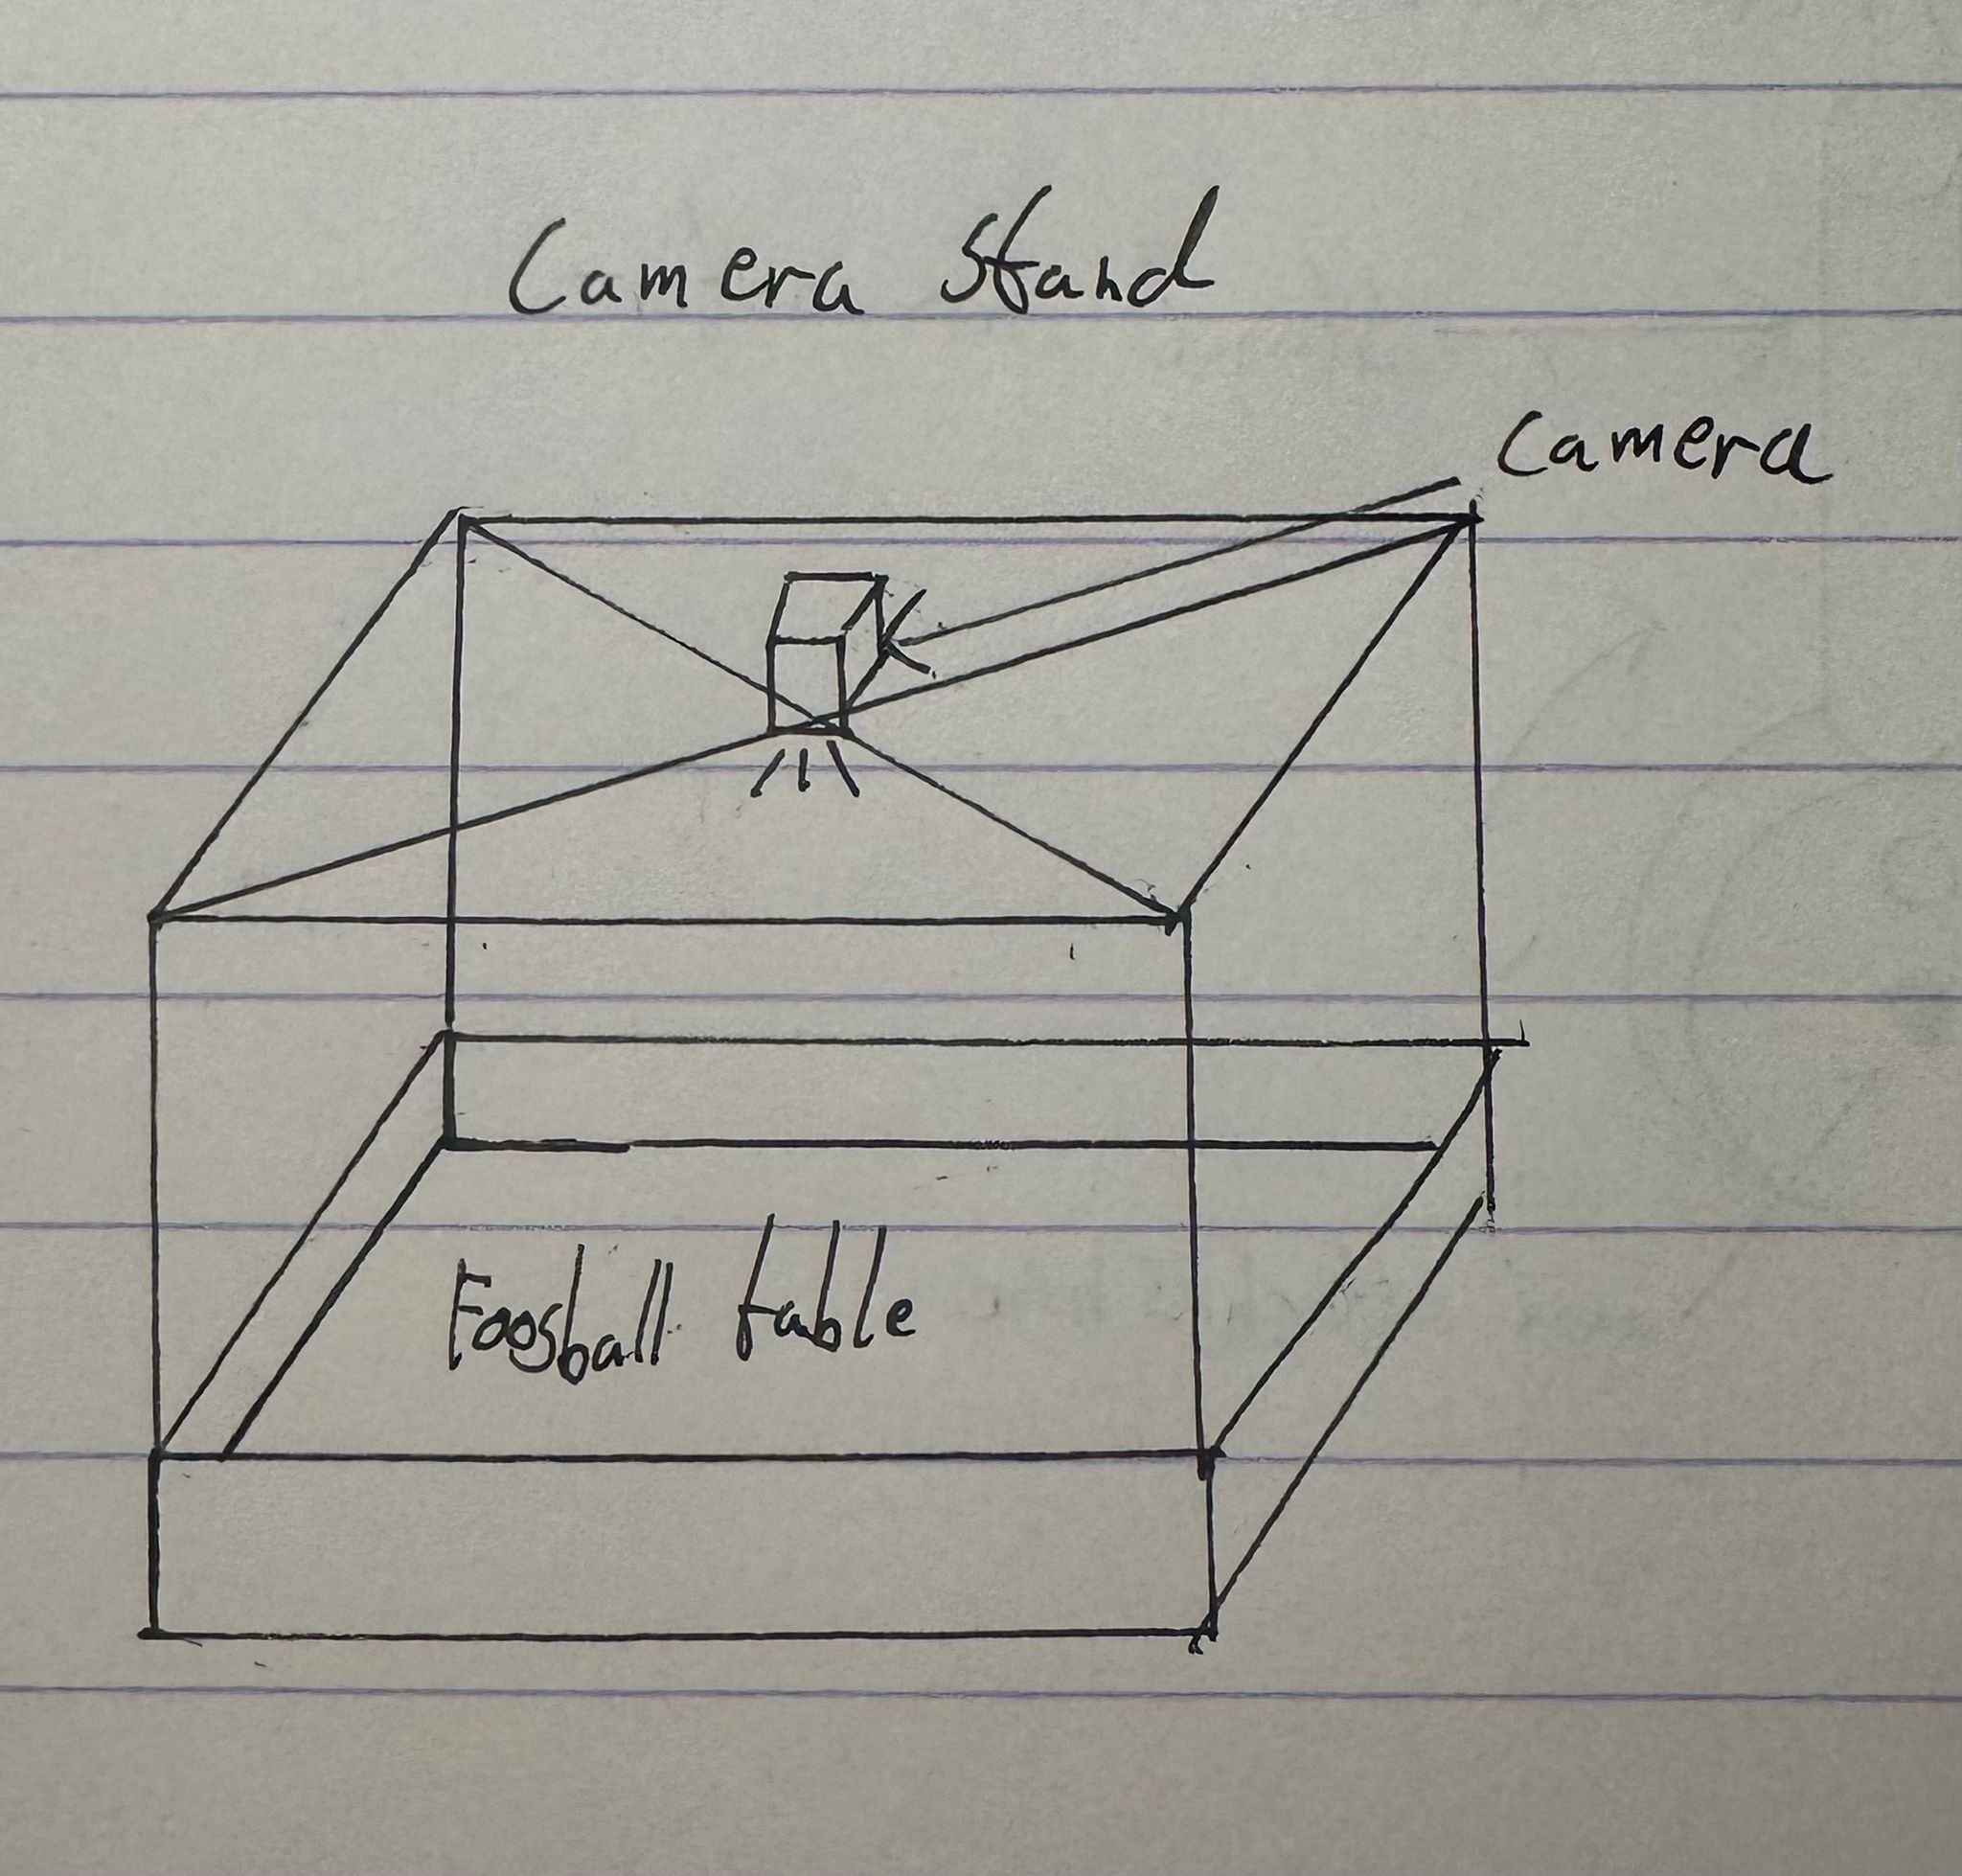 Camera Stand
Camera
Foosball table